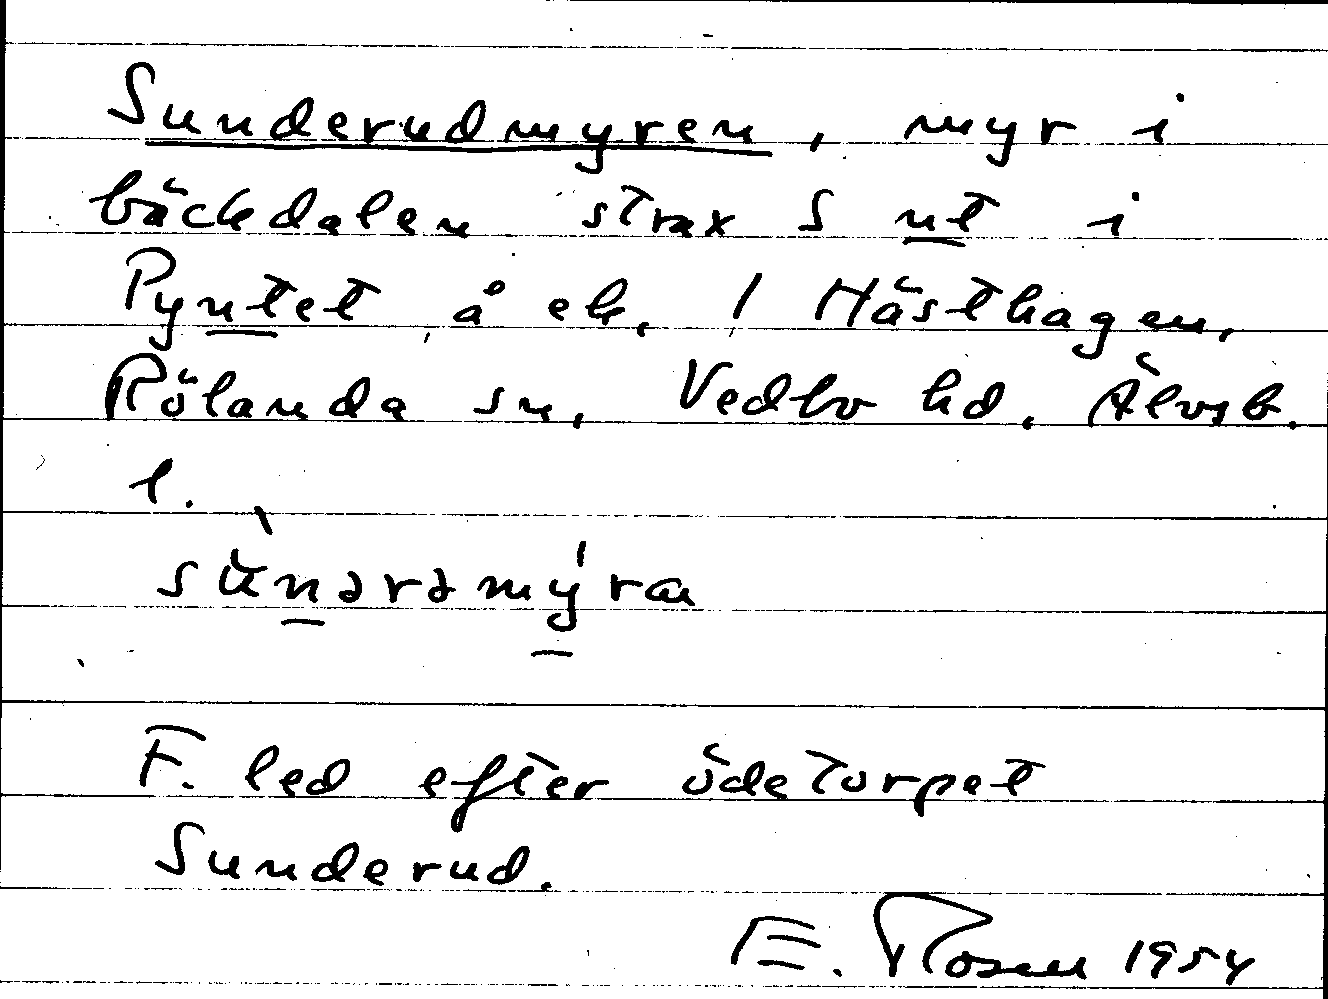 Sunderudmyren, myr i
bäckdalen strax S nt i
Pyntet å ek. 1 Hästhagen,
Rölanda sn, Vedbo hd, Älvsb.
l.
F. led efter ödetorpet
Sunderud.
E. Rosell 1954